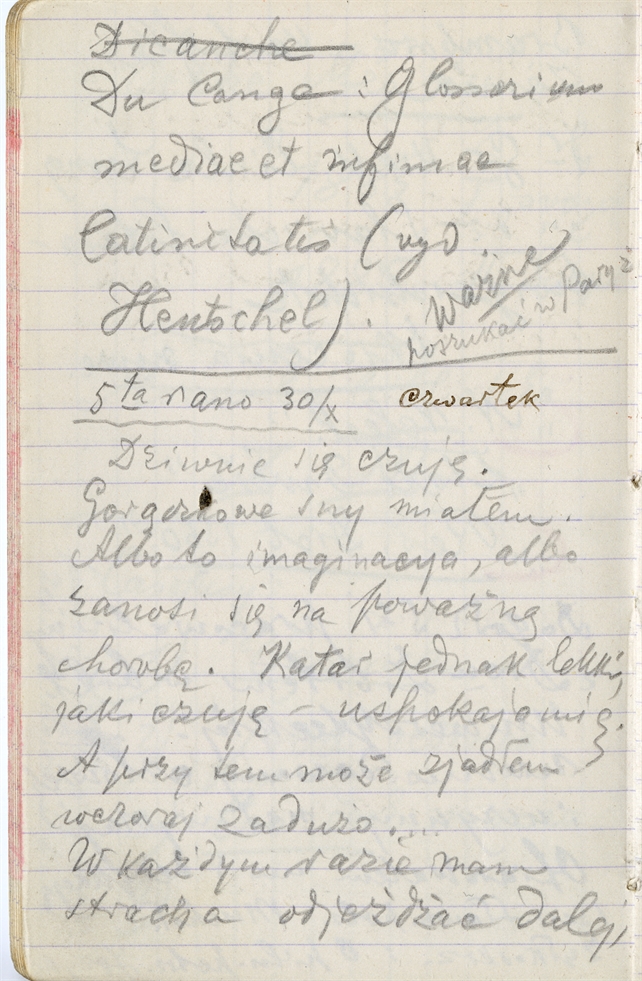 Dicanche
Du Cange : Glossarium
mediae et infimae
latinitatis (wyd.
Hentschel). Ważne
poszukać w Paryż
5ta rano 30/X czwartek
Dziwnie się czuję.
Gorączkowe sny miałem.
Albo to imaginacya, albo
zanosi się na poważną
chorobę. Katar jednak lekki,
jaki czuję – uspokaja mię.
A przy tem może zjadłem
wczoraj zadużo....
W każdym razie mam
stracha odjeżdżać dalej,